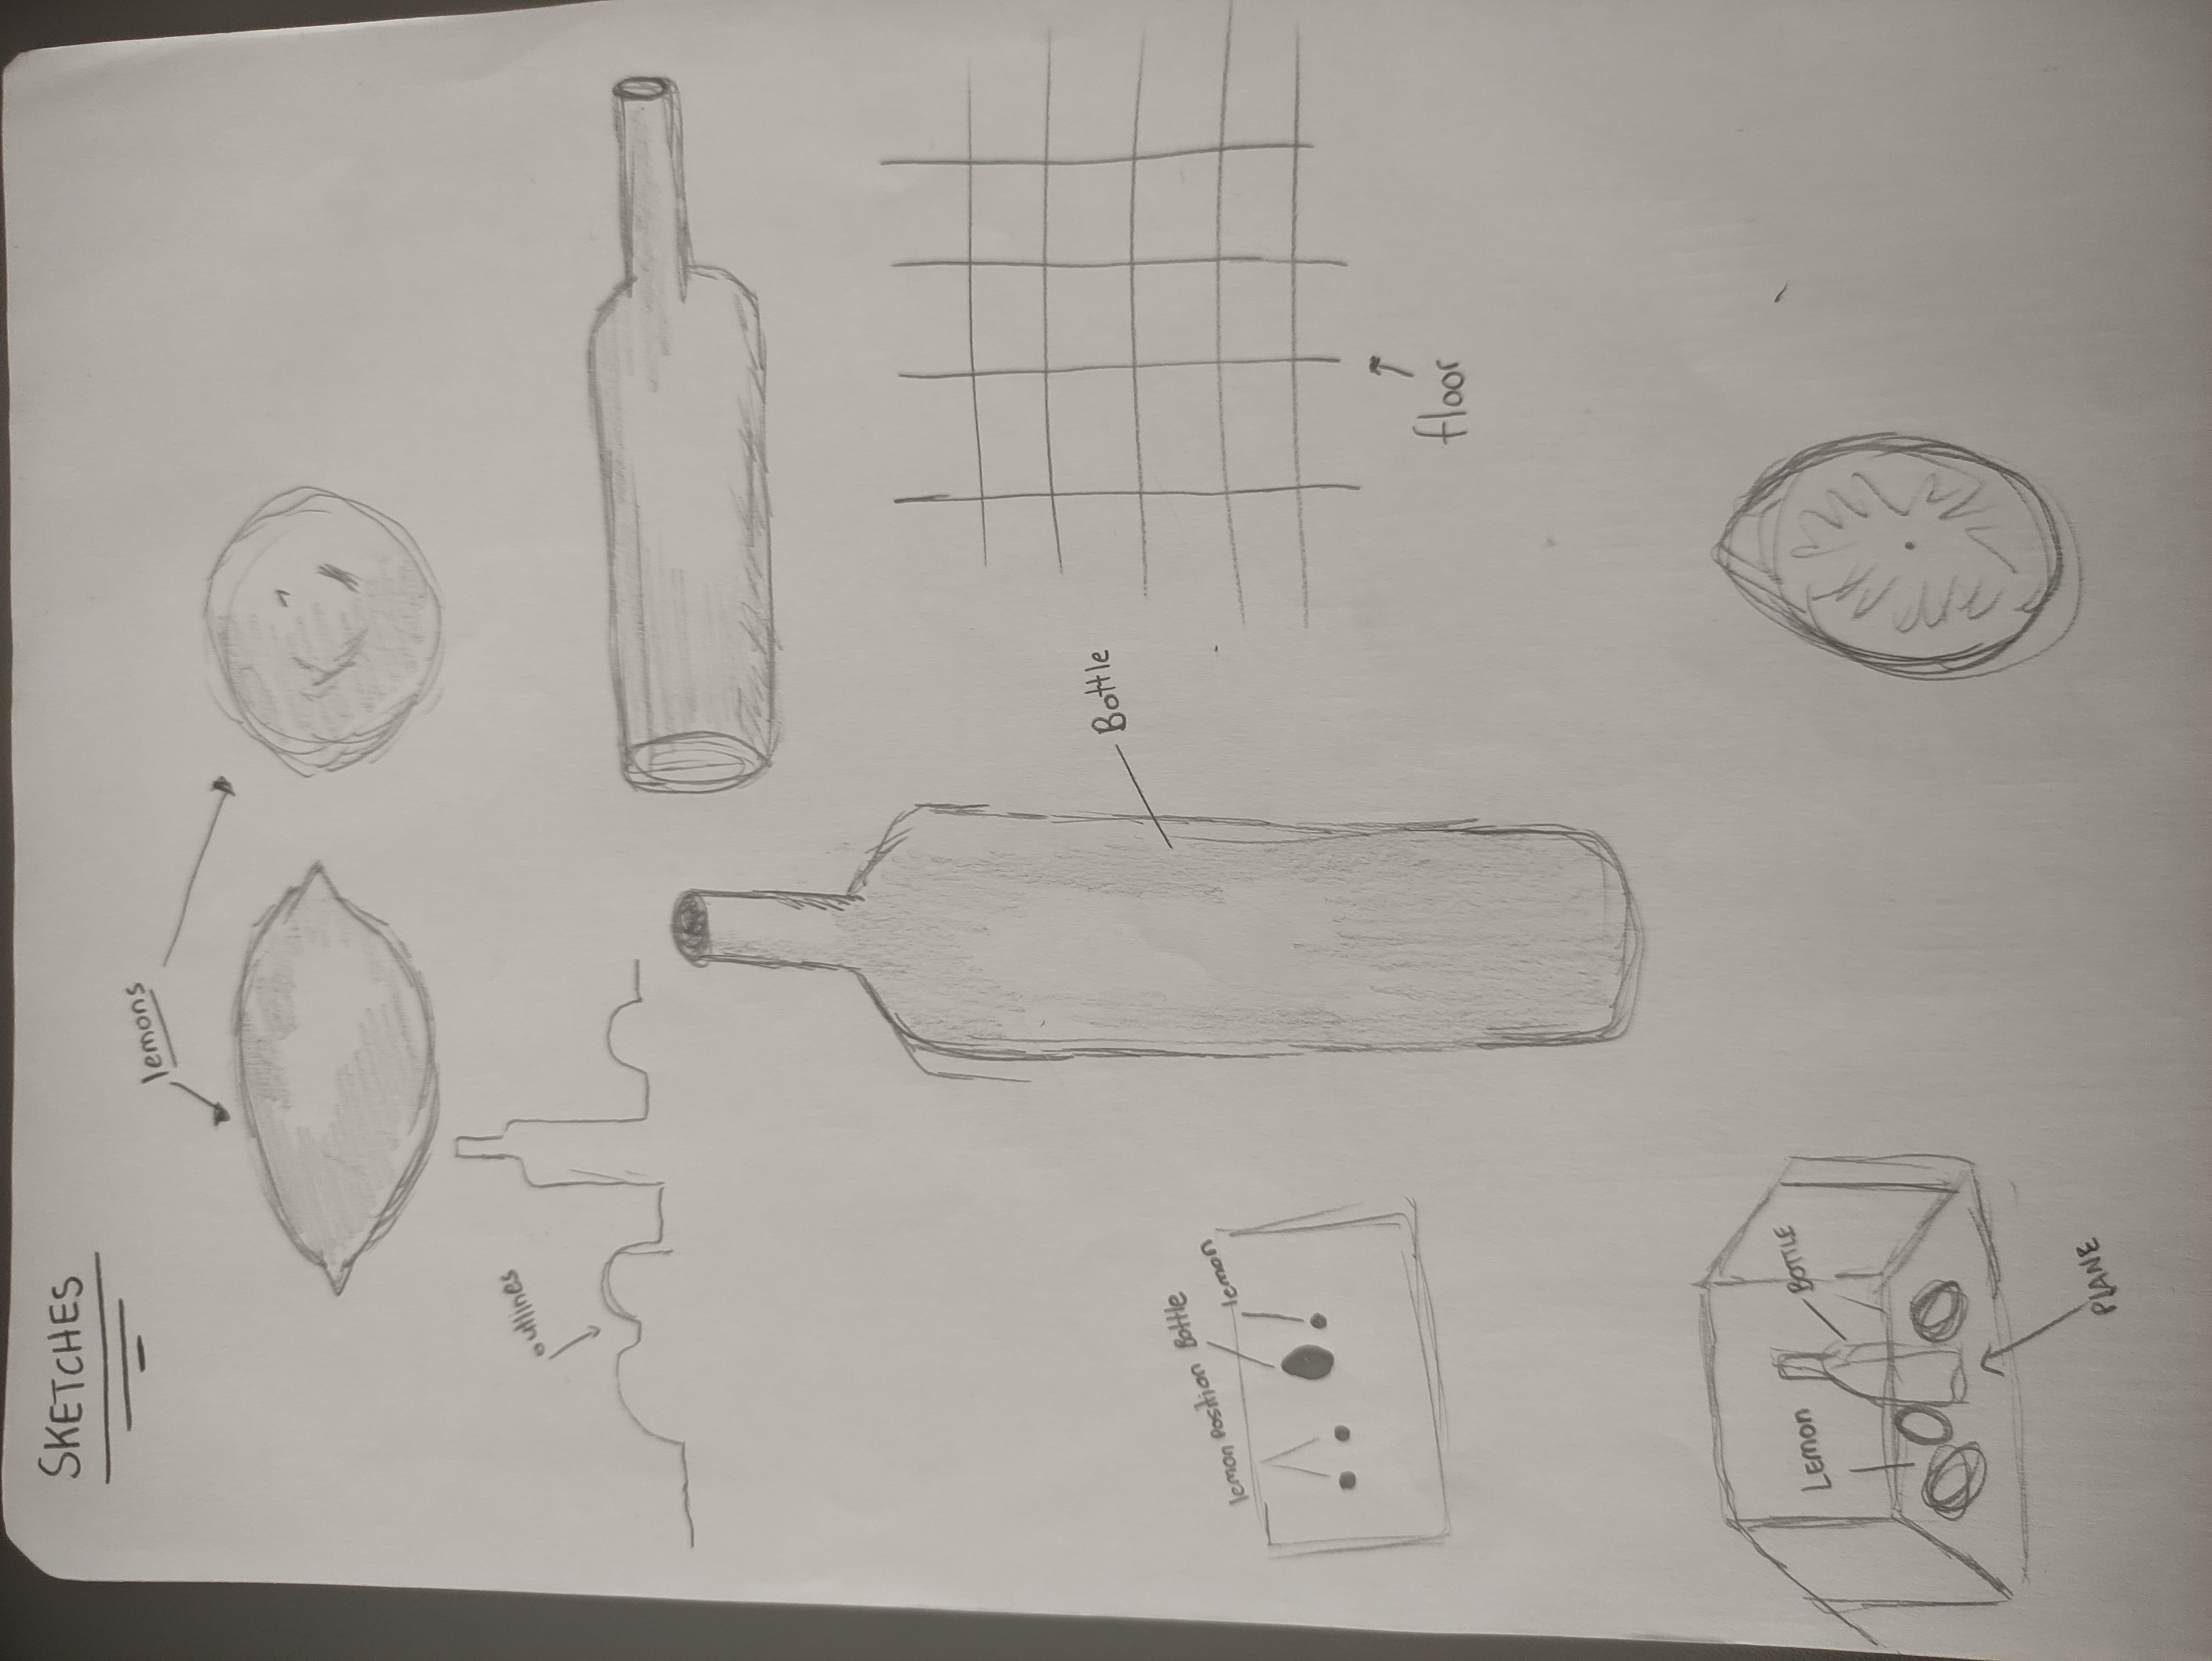 SKETCHES
lemons
outlines
Bottle
lemon position Bottle
lemon
floor
Lemon
BOTTLE
PLANE